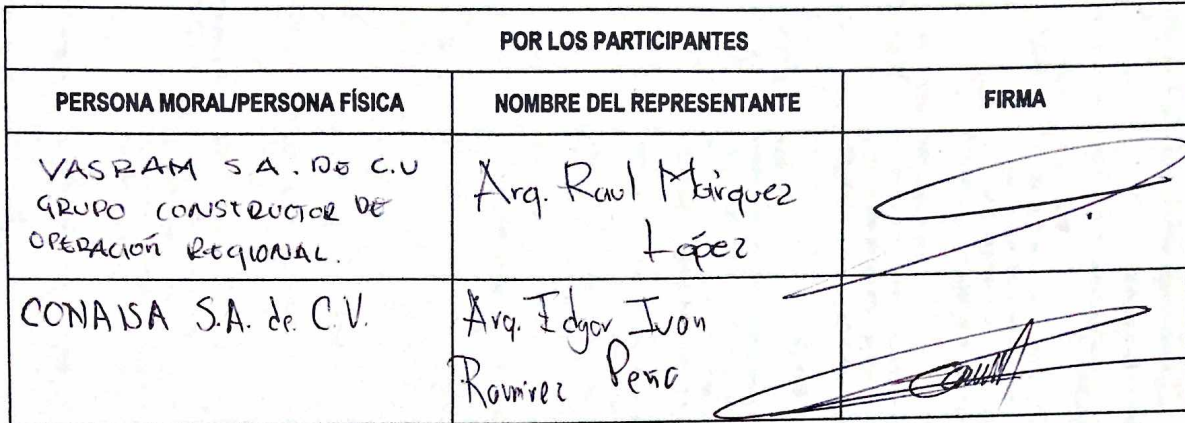 POR LOS PARTICIPANTES
PERSONA MORAL/PERSONA FÍSICA
NOMBRE DEL REPRESENTANTE
FIRMA
VASRAM S.A. DE C.V
GRUPO CONSTRUCTOR DE
OPERACIÓN REGIONAL.
Arq. Raul Márquez
López
CONAISA S.A. de C.V.
Arq. Edgar Ivan
Ramirez Peña